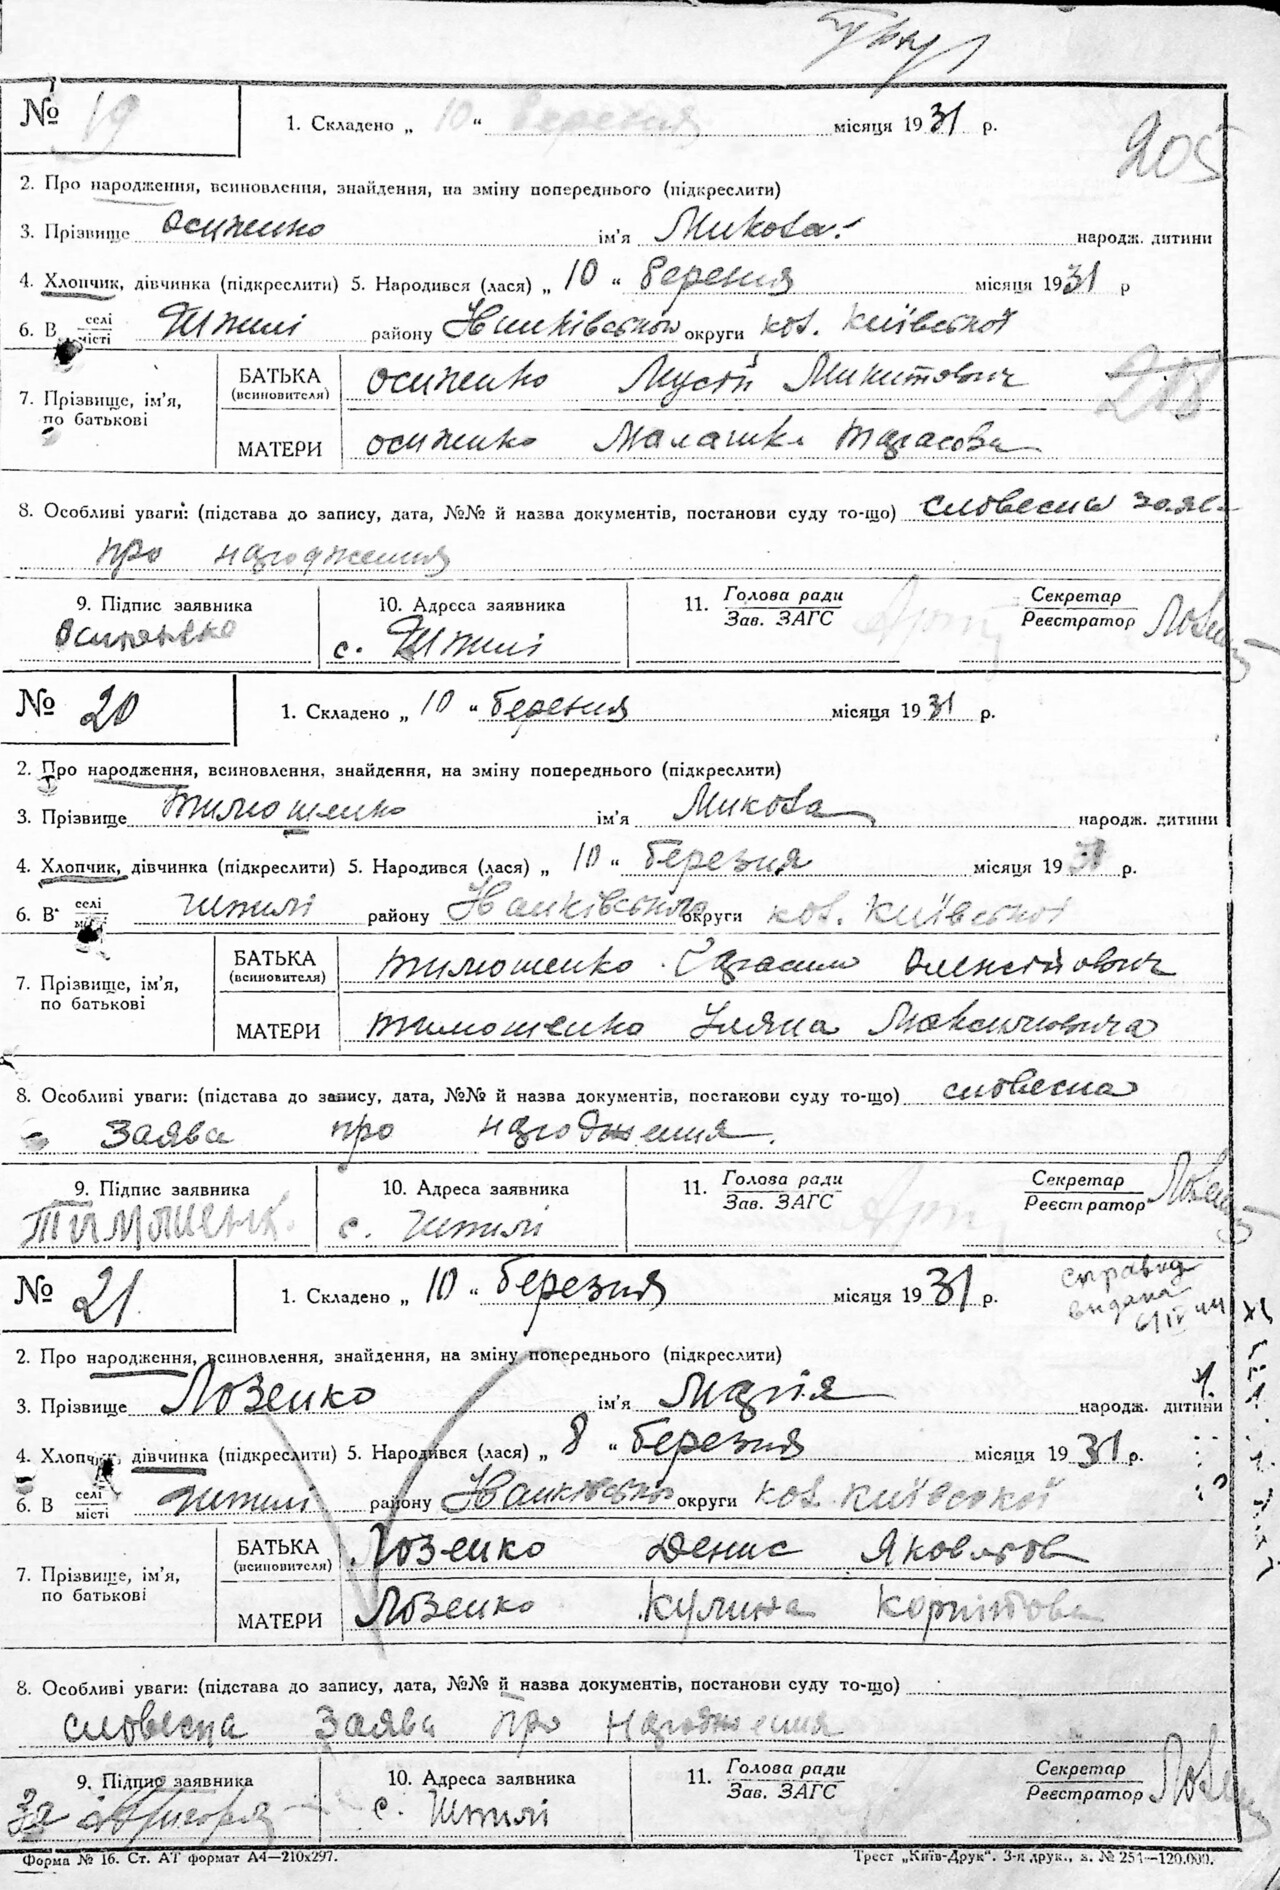 205
№ 19
1. Складено „ 10 “ березня місяця 1931 р.
2. Про народження, всиновлення, знайдення, на зміну попереднього (підкреслити)
3. Прізвище Осипенко ім’я Микола народж. дитини
4. Хлопчик, дівчинка (підкреслити) 5. Народився (лася) „ 10 “ березня місяця 1931 р
6. В селі місті району Іванківського округи кол. Київської
218
7. Прізвище, ім’я, по батькові
БАТЬКА (всиновителя) Осипенко Мусій Микитович
МАТЕРИ Осипенко Малашка Тарасова
8. Особливі уваги: (підстава до запису, дата, №№ й назва документів, постанови суду то-що) словесна заява
про народження
9. Підпис заявника 10. Адреса заявника 11. Голова ради Зав. ЗАГС Секретар Реєстратор
Осипенко с.
№ 20
1. Складено „ 10 “ березня місяця 1931 р.
2. Про народження, всиновлення, знайдення, на зміну попереднього (підкреслити)
3. Прізвище Тимошенко ім’я Микола народж. дитини
4. Хлопчик, дівчинка (підкреслити) 5. Народився (лася) „ 10 “ березня місяця 1931 р.
6. В селі району Іванківського округи кол. Київської
7. Прізвище, ім’я, по батькові
БАТЬКА (всиновителя) Тимошенко Герасим Олексійович
МАТЕРИ Тимошенко Уляна Максимовича
8. Особливі уваги: (підстава до запису, дата, №№ й назва документів, постанови суду то-що) словесна
заява про народження.
9. Підпис заявника 10. Адреса заявника 11. Голова ради Зав. ЗАГС Секретар Реєстратор
Тимошенк. с.
№ 21
1. Складено „ 10 “ березня місяця 1931 р.
справка
видана
2. Про народження, всиновлення, знайдення, на зміну попереднього (підкреслити)
3. Прізвище Лозенко ім’я Марія народж. дитини
4. Хлопчик, дівчинка (підкреслити) 5. Народився (лася) „ 8 “ березня місяця 1931 р.
6. В селі місті району Іванківсько округи кол. Київської
7. Прізвище, ім’я, по батькові
БАТЬКА (всиновителя) Лозенко Денис Яковлов
МАТЕРИ Лозенко Кулина Корнітова
8. Особливі уваги: (підстава до запису, дата, №№ й назва документів, постанови суду то-що)
словесна заява про народження
9. Підпис заявника 10. Адреса заявника 11. Голова ради Зав. ЗАГС Секретар Реєстратор
За с.
Форма № 16. Ст. АТ формат А4—210x297. Трест „Київ-Друк“. 3-я друк., з. № 254—120.000.